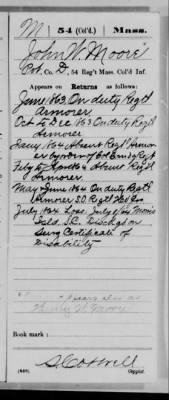 M 54 (Col'd.) Mass.
John W. Moore
Pvt. Co. D, 54 Reg't Mass. Col'd Inf.
Appears on Returns as follows:
June 1863, On duty Regtl
Armorer
Oct to Dec 1863 On duty Regtl
Armorer
Jany 1864 Absent Regtl Armor
er by order of Col Comdg Regt
Feby to 1864 Absent Regtl
Armorer
May & June 1864 On duty Regtl
Armorer S.O. Regtl
July 1864 Loss July 1864 Morris
Isld. S.C. Disch'gd on
Surg Certificate of
Disability
Appears also as
Henry W. Moore
Book mark:
Copyist.